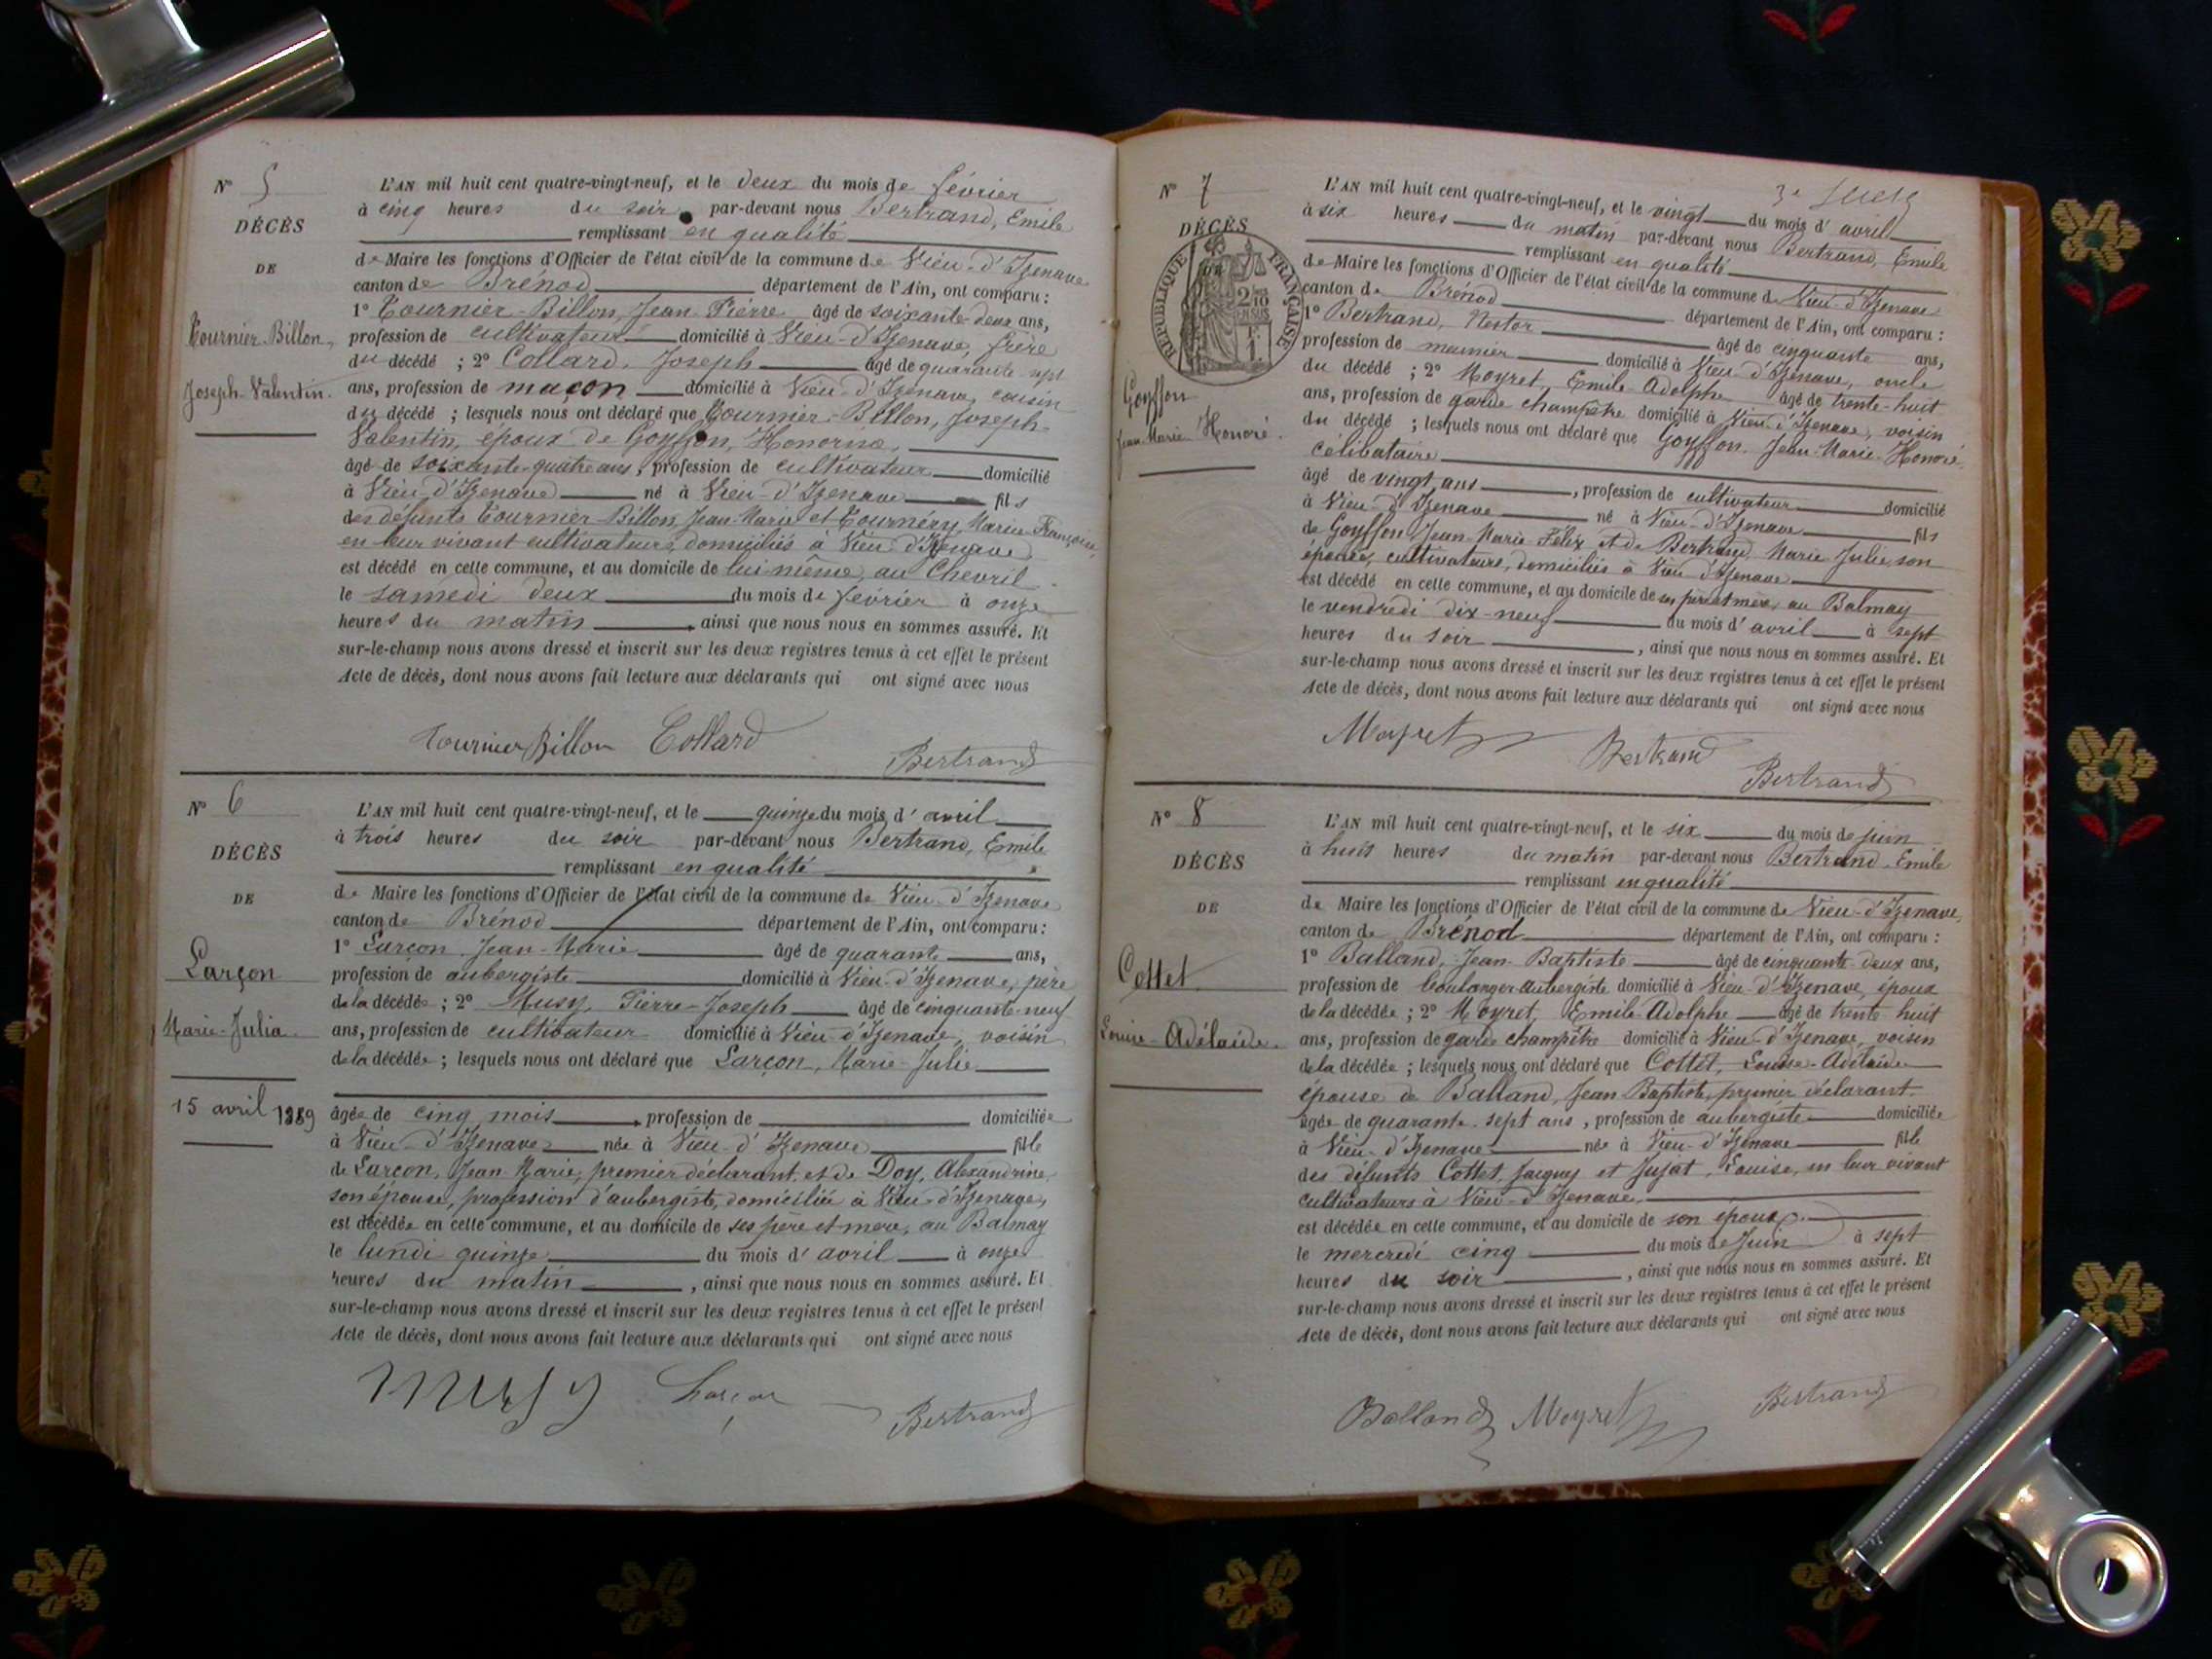 N° 5
DÉCÈS
DE
Tournier-Billon,
Joseph-Valentin.
L'AN mil huit cent quatre-vingt-neuf, et le deux du mois de février
à cinq heures du soir par-devant nous Bertrand, Emile
remplissant en qualité
de Maire les fonctions d'Officier de l'état civil de la commune de Vieu-d'Izenave
canton de Brénod département de l'Ain, ont comparu :
1° Tournier-Billon, Jean Pierre âgé de soixante-deux ans,
profession de cultivateur domicilié à Vieu-d'Izenave, frère
du décédé ; 2° Collard, Joseph âgé de quarante-sept
ans, profession de maçon domicilié à Vieu-d'Izenave, cousin
du décédé ; lesquels nous ont déclaré que Tournier-Billon, Joseph-
Valentin, époux de Goyffon, Honorine,
âgé de soixante-quatre ans, profession de cultivateur domicilié
à Vieu-d'Izenave né à Vieu-d'Izenave fils
des défunts Tournier-Billon, Jean-Marie et Tournéry, Marie-Françoise,
en leur vivant cultivateurs, domiciliés à Vieu-d'Izenave
est décédé en cette commune, et au domicile de lui-même, au Chevril
le samedi deux du mois de février à onze
heures du matin, ainsi que nous nous en sommes assuré. Et
sur-le-champ nous avons dressé et inscrit sur les deux registres tenus à cet effet le présent
Acte de décès, dont nous avons fait lecture aux déclarants qui ont signé avec nous
Tournier Billon Collard
Bertrand
N° 6
DÉCÈS
DE
Larçon
Marie-Julia.
15 avril 1889
L'AN mil huit cent quatre-vingt-neuf, et le quinze du mois d'avril
à trois heures du soir par-devant nous Bertrand, Emile
remplissant en qualité
de Maire les fonctions d'Officier de l'état civil de la commune de Vieu-d'Izenave
canton de Brénod département de l'Ain, ont comparu :
1° Larçon, Jean-Marie âgé de quarante ans,
profession de aubergiste domicilié à Vieu-d'Izenave, père
de la décédée ; 2° Musy, Pierre-Joseph âgé de cinquante-neuf
ans, profession de cultivateur domicilié à Vieu-d'Izenave, voisin
de la décédée ; lesquels nous ont déclaré que Larçon, Marie-Julie
âgée de cinq mois, profession de domiciliée
à Vieu-d'Izenave née à Vieu-d'Izenave fille
de Larçon, Jean-Marie, premier déclarant, et de Doy, Alexandrine,
son épouse, profession d'aubergiste, domiciliée à Vieu-d'Izenave,
est décédée en cette commune, et au domicile de ses père et mère, au Balmay
le lundi quinze du mois d'avril à onze
heures du matin, ainsi que nous nous en sommes assuré. Et
sur-le-champ nous avons dressé et inscrit sur les deux registres tenus à cet effet le présent
Acte de décès, dont nous avons fait lecture aux déclarants qui ont signé avec nous
Musy Larçon
Bertrand
N° 7
DÉCÈS
RÉPUBLIQUE FRANÇAISE
Goyffon
Jean-Marie-Honoré.
L'AN mil huit cent quatre-vingt-neuf, et le vingt du mois d'avril
à six heures du matin par-devant nous Bertrand, Emile
remplissant en qualité
de Maire les fonctions d'Officier de l'état civil de la commune de Vieu-d'Izenave
canton de Brénod département de l'Ain, ont comparu :
1° Bertrand, Nestor âgé de cinquante ans,
profession de meunier domicilié à Vieu-d'Izenave, oncle
du décédé ; 2° Moyret, Emile-Adolphe âgé de trente-huit
ans, profession de garde champêtre domicilié à Vieu-d'Izenave, voisin
du décédé ; lesquels nous ont déclaré que Goyffon, Jean-Marie-Honoré,
célibataire
âgé de vingt ans, profession de cultivateur domicilié
à Vieu-d'Izenave né à Vieu-d'Izenave fils
de Goyffon, Jean-Marie-Félix et de Bertrand, Marie Julie, son
épouse, cultivateurs, domiciliés à Vieu-d'Izenave
est décédé en cette commune, et au domicile de ses père et mère, au Balmay
le vendredi dix-neuf du mois d'avril à sept
heures du soir, ainsi que nous nous en sommes assuré. Et
sur-le-champ nous avons dressé et inscrit sur les deux registres tenus à cet effet le présent
Acte de décès, dont nous avons fait lecture aux déclarants qui ont signé avec nous
Moyret Bertrand
Bertrand
N° 8
DÉCÈS
DE
Cottet
Louise-Adélaïde.
L'AN mil huit cent quatre-vingt-neuf, et le six du mois de juin
à huit heures du matin par-devant nous Bertrand, Emile
remplissant en qualité
de Maire les fonctions d'Officier de l'état civil de la commune de Vieu-d'Izenave,
canton de Brénod département de l'Ain, ont comparu :
1° Balland, Jean-Baptiste âgé de cinquante-deux ans,
profession de boulanger-aubergiste domicilié à Vieu-d'Izenave, époux
de la décédée ; 2° Moyret, Emile-Adolphe âgé de trente-huit
ans, profession de garde champêtre domicilié à Vieu-d'Izenave, voisin
de la décédée ; lesquels nous ont déclaré que Cottet, Louise-Adélaïde
épouse de Balland, Jean-Baptiste, premier déclarant.
âgée de quarante-sept ans, profession de aubergiste domiciliée
à Vieu-d'Izenave née à Vieu-d'Izenave fille
des défunts Cottet, Jacques et Jujat, Louise, en leur vivant
cultivateurs à Vieu-d'Izenave,
est décédée en cette commune, et au domicile de son époux
le mercredi cinq du mois de Juin à sept
heures du soir, ainsi que nous nous en sommes assuré. Et
sur-le-champ nous avons dressé et inscrit sur les deux registres tenus à cet effet le présent
Acte de décès, dont nous avons fait lecture aux déclarants qui ont signé avec nous
Balland Moyret
Bertrand